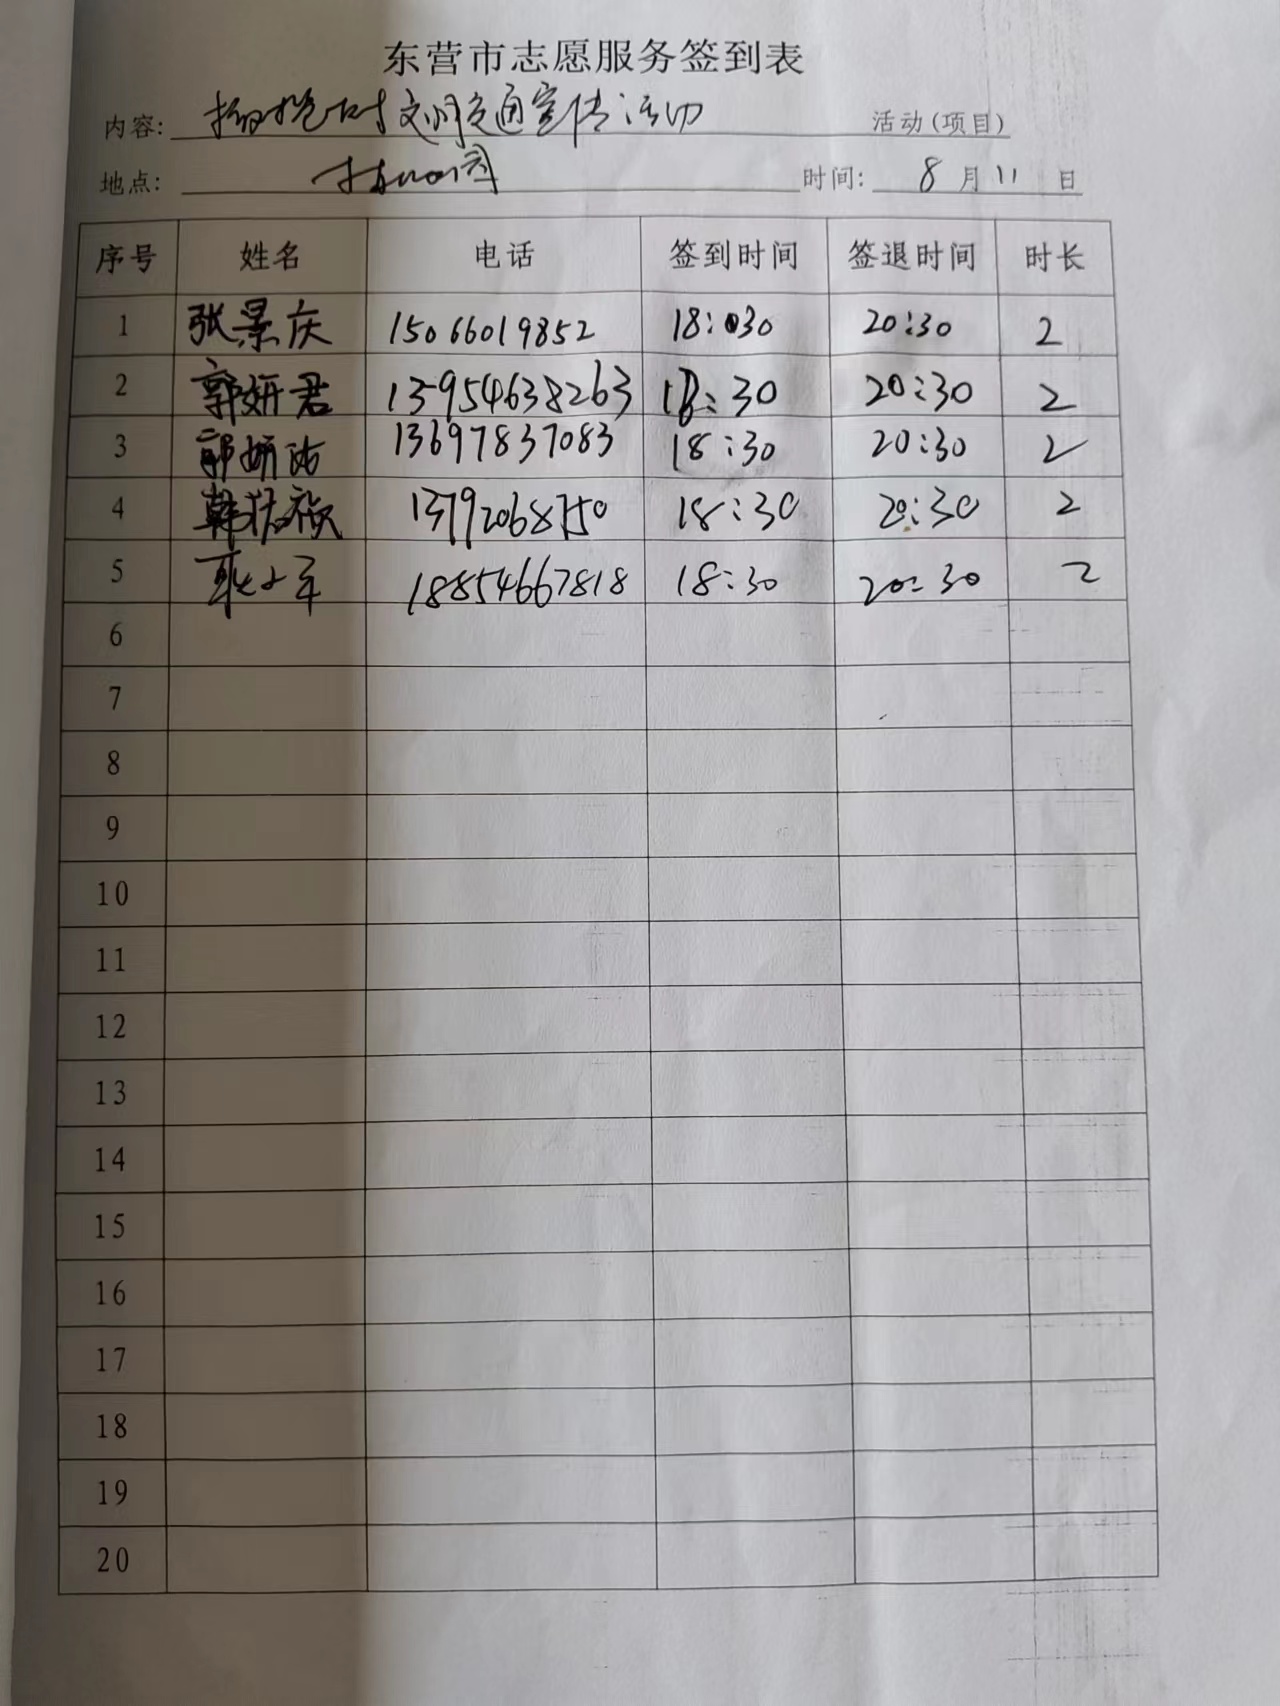 东营市志愿服务签到表
内容: 文明交通宣传活动 活动(项目)
地点: 时间: 8月11日
序号 姓名 电话 签到时间 签退时间 时长
1 张景庆 15066019852 18:030 20:30 2
2 郭妍君 13954638263 18:30 20:30 2
3 郭妍 13697837083 18:30 20:30 2
4 韩 13792068750 18:30 20:30 2
5 耿小军 18854667818 18:30 20:30 2
6
7
8
9
10
11
12
13
14
15
16
17
18
19
20